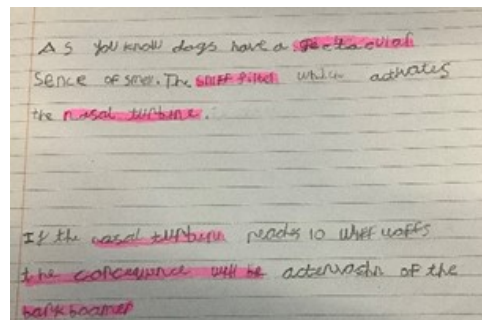 As you know dogs have a spectacular
sence of smell. The sniff filter which activates
the nasal turbine.
If the nasal turbine reads 10 whiff woffs
the concequence will be actervashn of the
bark boamer